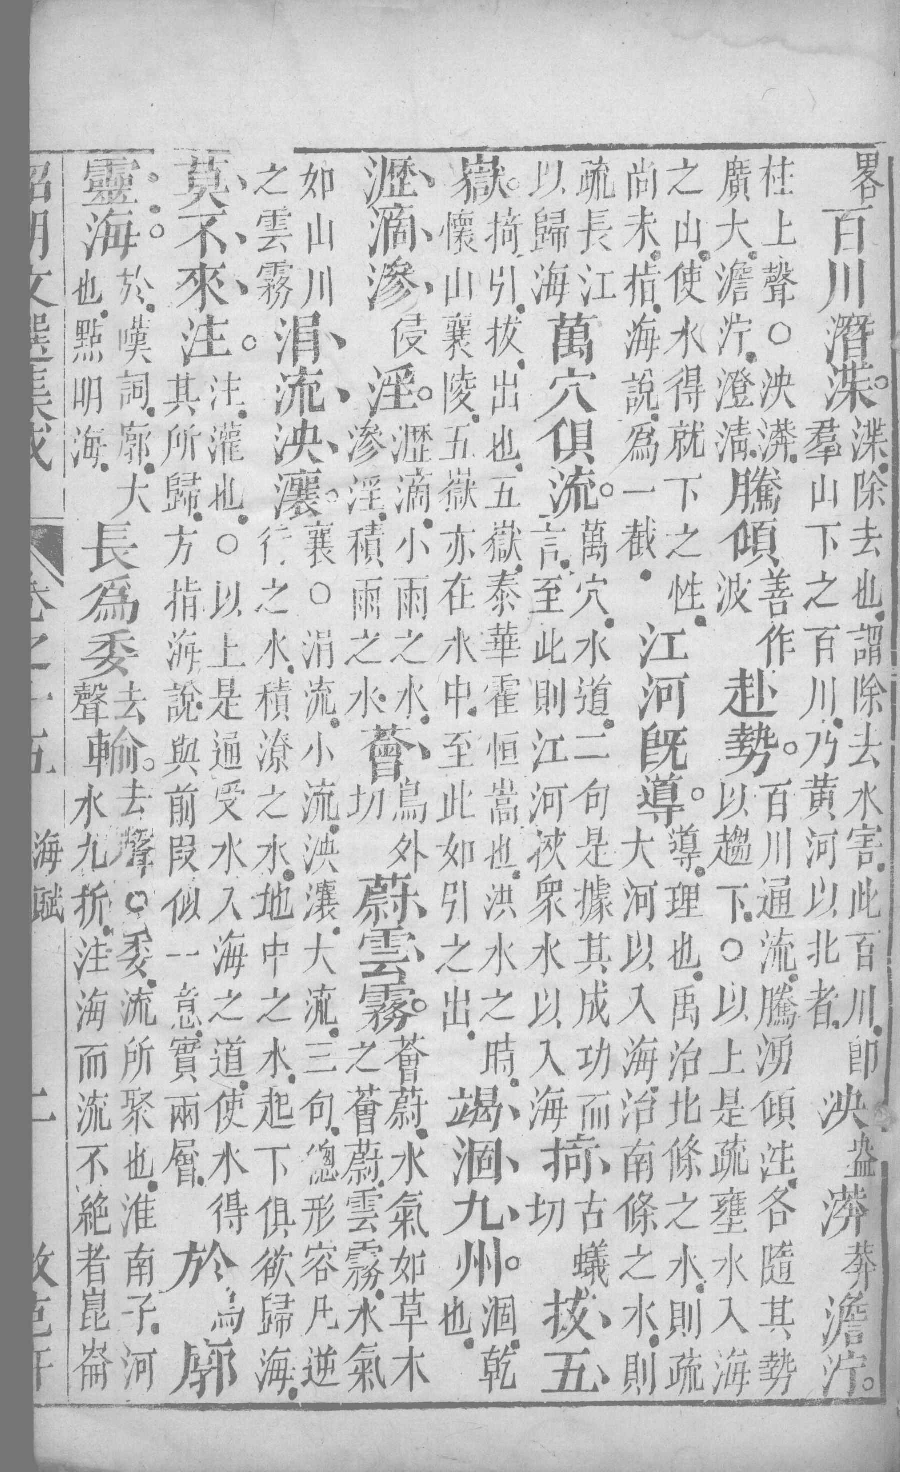 畧百川潛渫。渫除去也謂除去水害此百川卽羣山下之百川乃黃河以北者泱盎漭莽澹濘。
柱上聲○泱漭廣大澹濘澄淸騰傾善作波赴勢。百川通流騰湧傾注各隨其勢以趨下○以上是疏壅水入海
之山使水得就下之性尙未指海說爲一截江河旣導。導理也禹治北條之水則疏大河以入海治南條之水則
疏長江以歸海萬穴俱流。萬穴水道二句是據其成功而言至此則江河挾衆水以入海掎古蟻切拔五
嶽。掎引拔出也五嶽泰華霍恒嵩也洪水之時懷山襄陵五嶽亦在水中至此如引之出竭涸九州。涸乾也
瀝滴滲侵淫。瀝滴小雨之水滲淫積雨之水薈烏外切蔚雲霧。薈蔚水氣如草木之薈蔚雲霧水氣
如山川之雲霧涓流泱瀼。襄○涓流小流泱瀼大流三句總形容凡逆行之水積潦之水地中之水起下俱欲歸海
莫不來注。注灌也○以上是通受水入海之道使水得其所歸方指海說與前叚似一意實兩層於烏廓
靈海。於嘆詞廓大也點明海長爲委去聲輸。去聲○委流所聚也淮南子河水九折注海而流不絕者崑崙
昭明文選集成 卷之十五 海賦 二